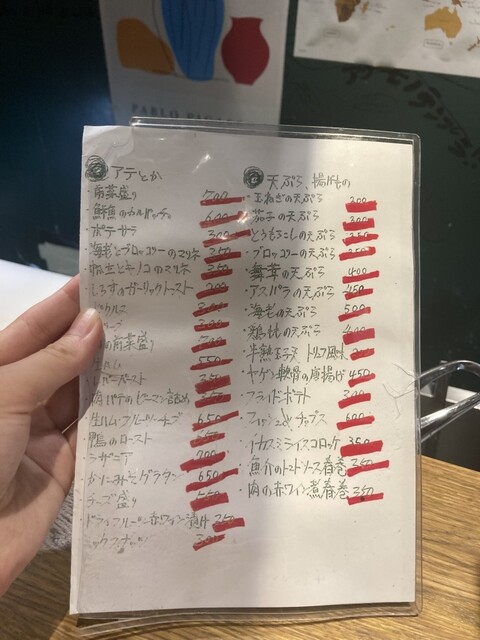 PABLO PICA
アテとか
・前菜盛り 700
・鮮魚のカルパッチョ 600
・ポテサラ 300
・海老とブロッコリーのマリネ 350
とキノコのマリネ 350
・しらすのガーリックトースト
の前菜盛り
生ハム 550
レバーペースト 350
肉パテのピーマン詰め 350
生ハム・フルーツ・チーズ 650
・鴨のロースト
・ラザニア 700
・かにみそグラタン 650
・チーズ盛り
・ドライフルーツ赤ワイン漬け 350
ミックスナッツ 300
天ぷら、揚げもの
・玉ねぎの天ぷら 300
・茄子の天ぷら 300
・とうもろこしの天ぷら 350
・ブロッコリーの天ぷら 350
・舞茸の天ぷら 400
・アスパラの天ぷら 450
・海老の天ぷら 500
・鶏桃の天ぷら 400
・半熟玉子天 トリュフ風味
・ヤゲン軟骨の唐揚げ 450
・フライドポテト 300
・フィッシュ&チップス 600
・イカスミライスコロッケ 350
・魚介のトマトソース春巻 350
・肉の赤ワイン煮春巻 350